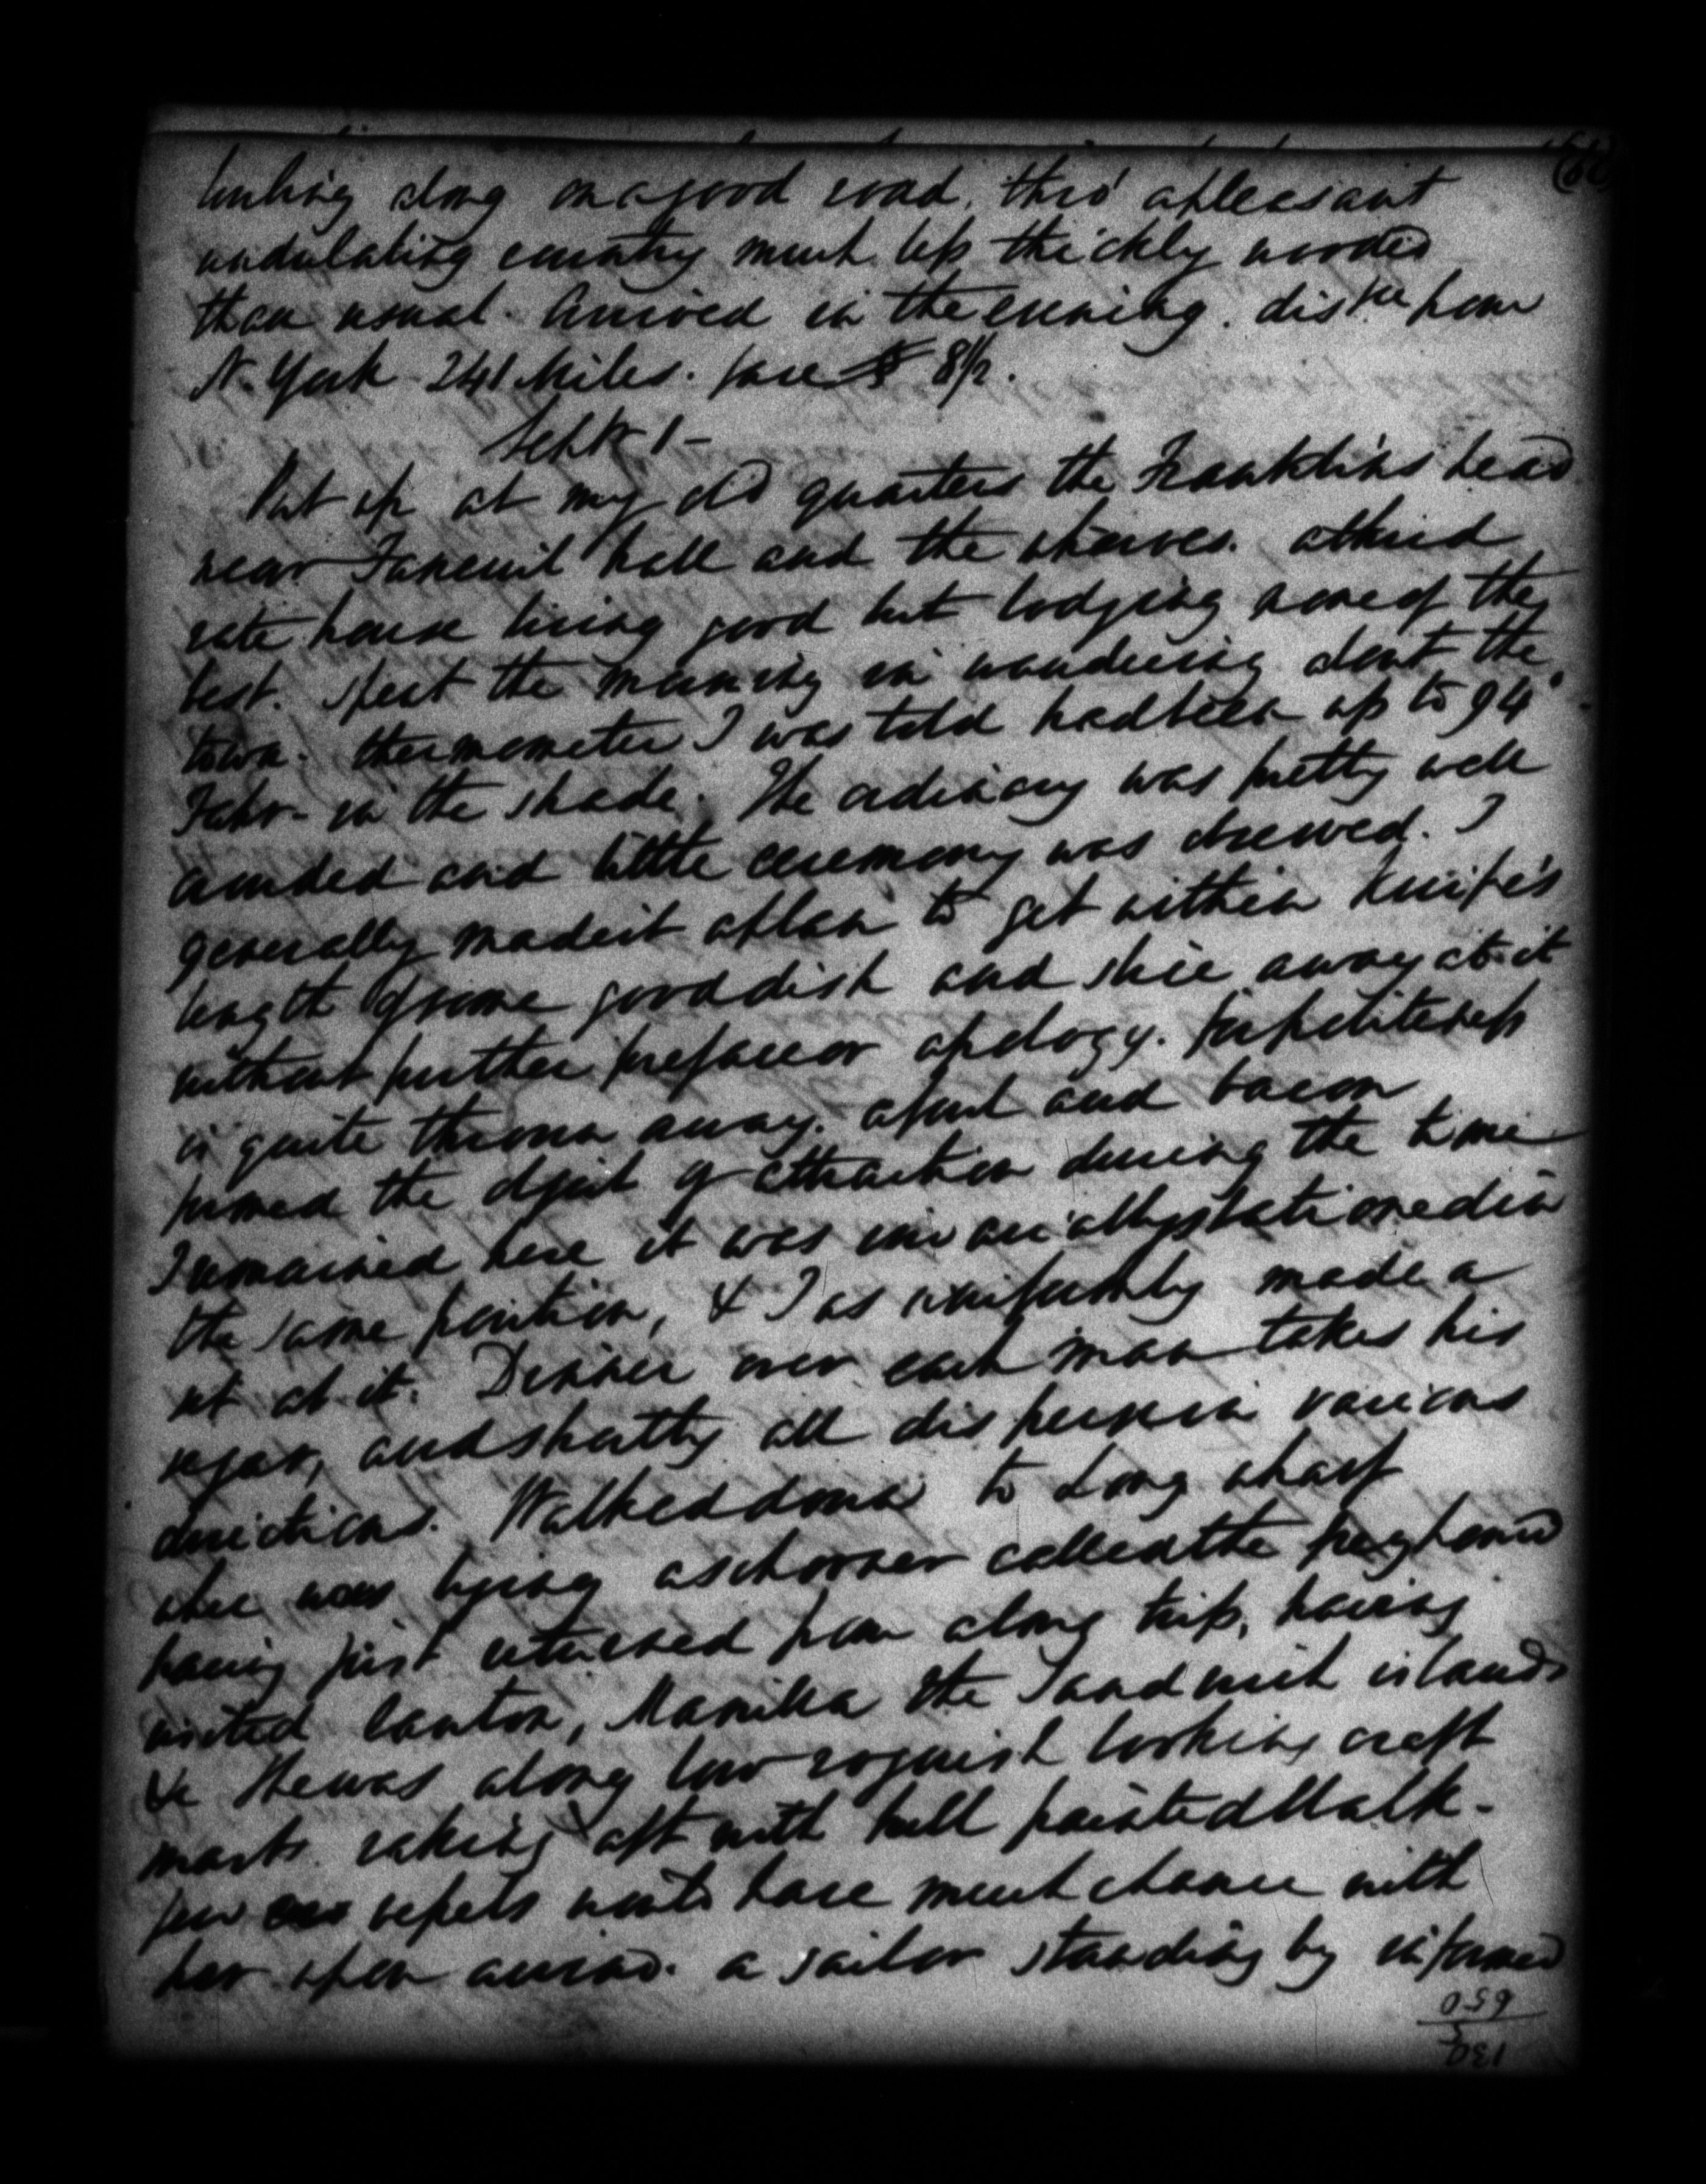 bowling along on a good road. thro' a pleasant
undulating country much less thickly wooded
than usual. Arrived in the evening. distce from
N. York 241 Miles. fare $ 8 1/2.
Septr 1 -
Put up at my old quarters the Franklin's head
near Faneuil hall and the wharves. a third
rate house living good but lodging none of the
best. spent the morning in wandering about the
town. thermometer I was told had been up to 94°.
Fahr- in the shade. The ordinary was pretty well
crowded and little ceremony was observed. I
generally made it a plan to get within knife's
length of some good dish and slice away at it
without further preface or apology. for politeness
is quite thrown away. a fowl and bacon
formed the object of attraction during the time
I remained here it was invariably stationed in
the same position, & I as uniformly made a
set at it. Dinner over each man takes his
segar, and shortly all disperse in various
directions. Walked down to Long wharf
where was lying a schooner called the Greyhound
having just returned from a long trip, having
visited Canton, Manilla the Sandwich islands
&c She was a long low roguish looking craft
masts raking aft with hull painted black.
few vessels would have much chance with
her upon a wind. a sailor standing by informed
650
130